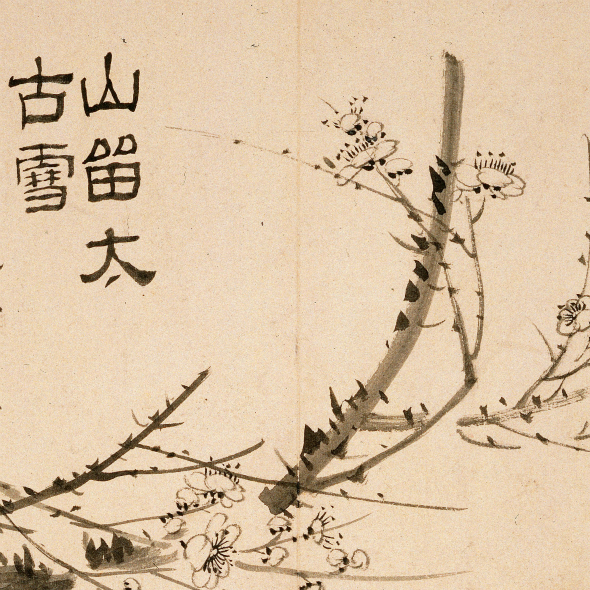 山留太
古雪